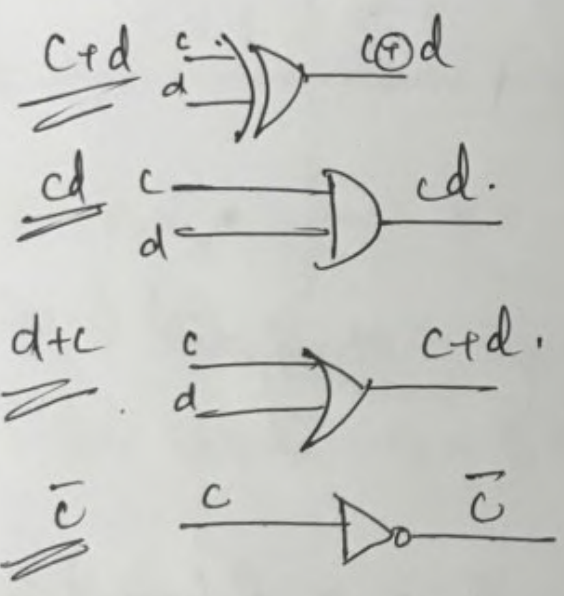 c+d c d c⊕d
cd c d cd.
d+c c d c+d.
c̄ c c̄